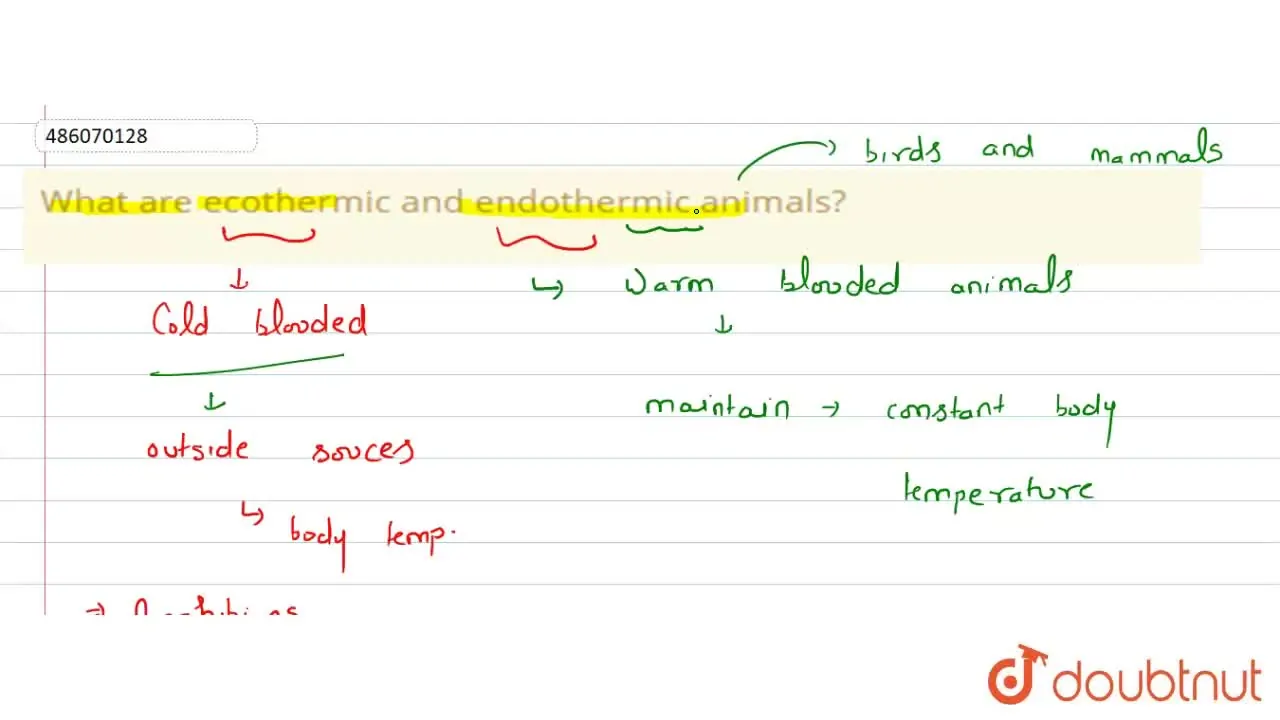 486070128
birds and mammals
What are ecothermic and endothermic animals?
Warm blooded animals
Cold blooded
maintain → constant body
temperature
outside souces
body temp.
doubtnut